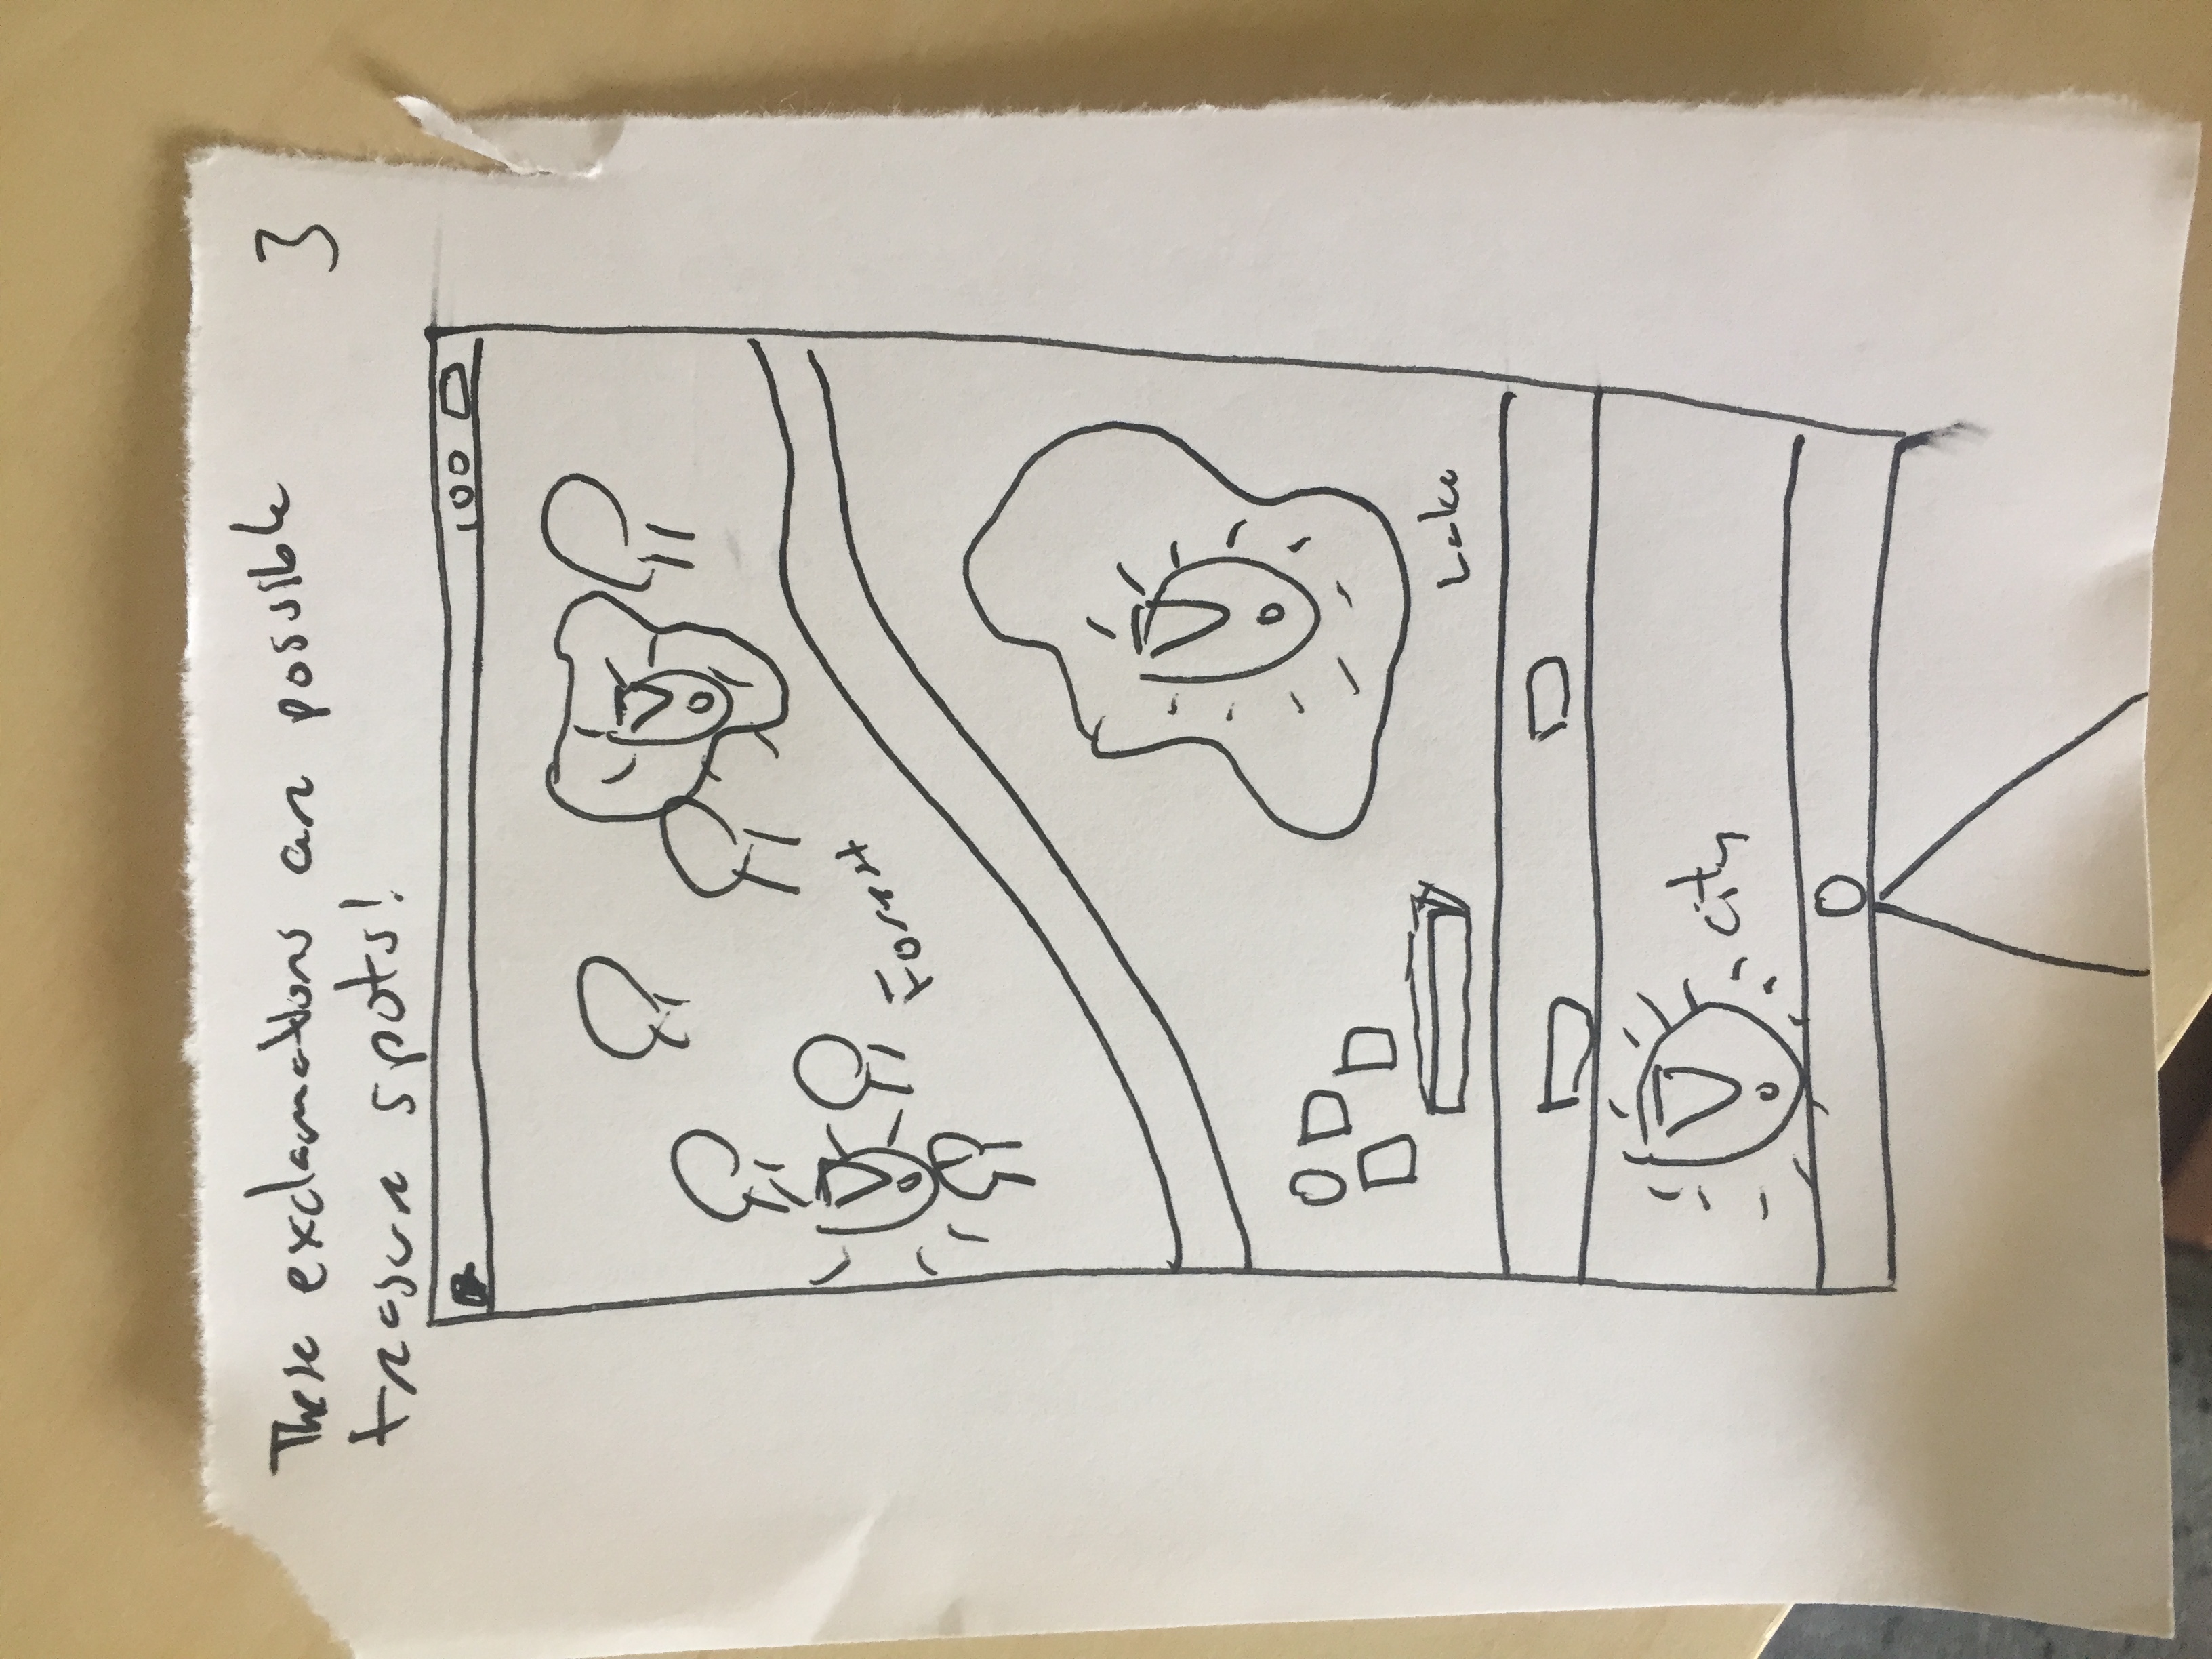 These exclamations are possible
treasure spots!
3
100
Forest
Lake
City